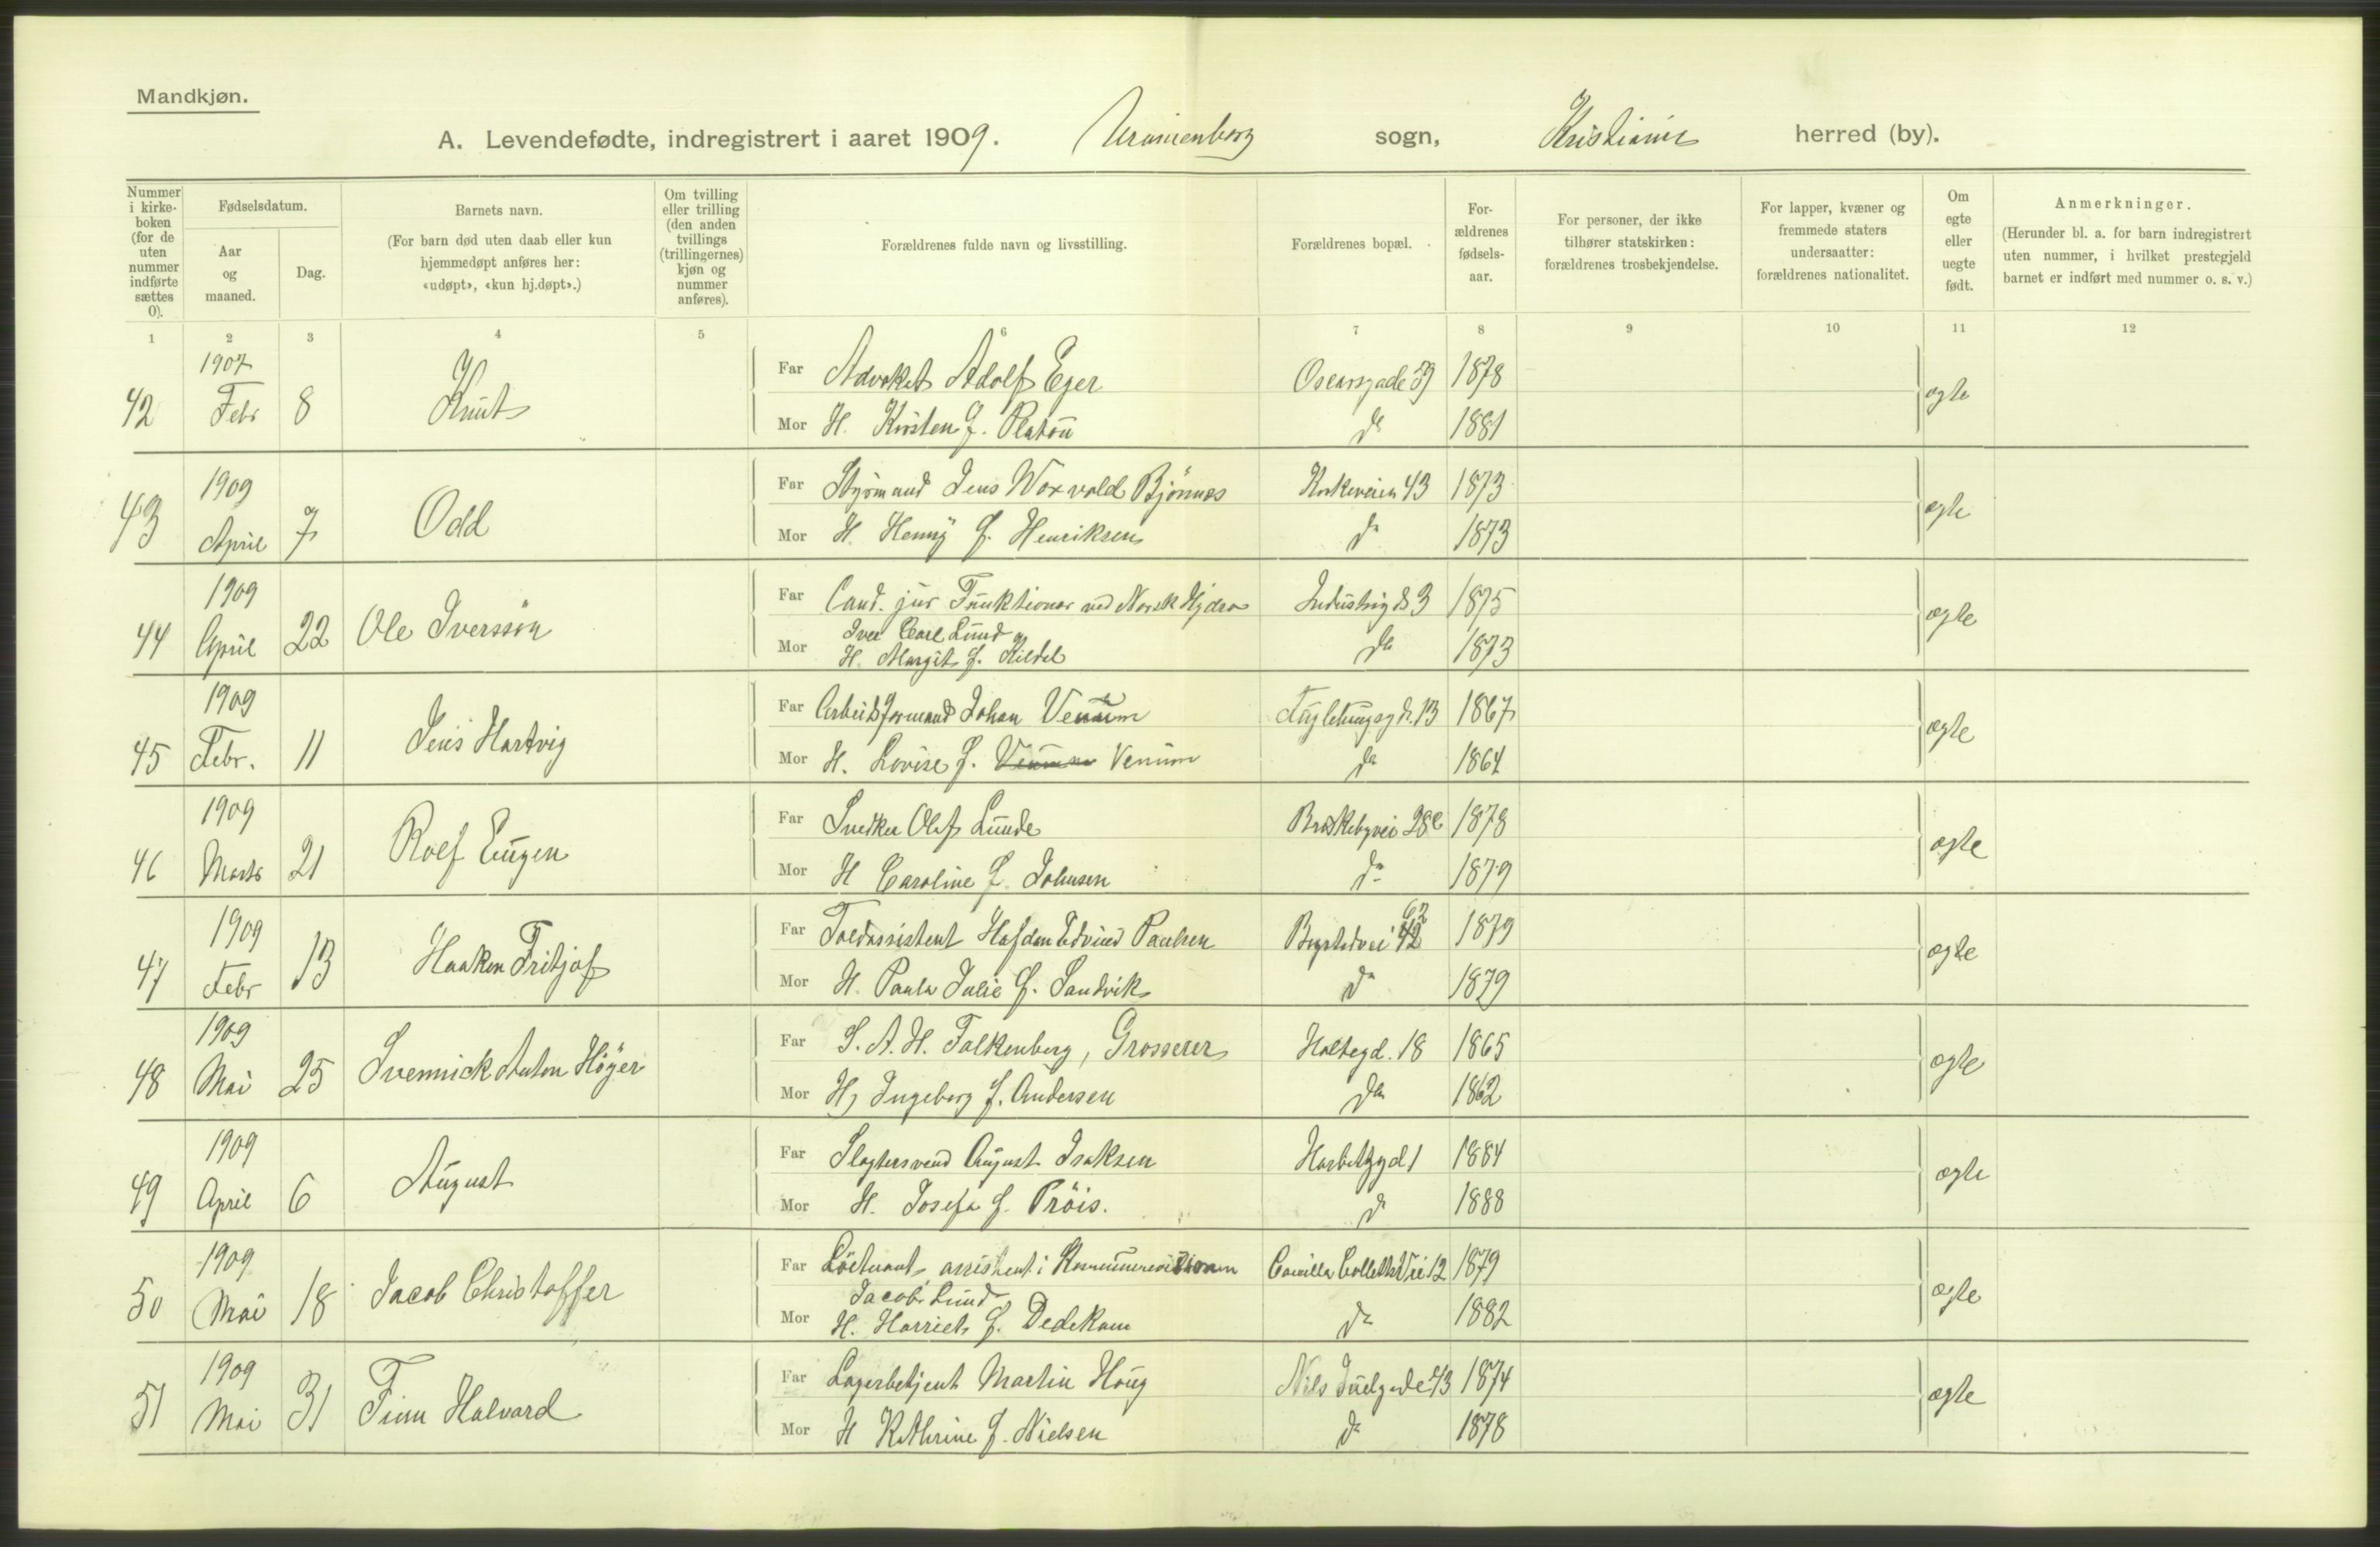 Mandkjøn.
A. Levendefødte, indregistrert i aaret 1909. Uranienborg sogn, Kristiania herred (by).
Nummer i kirke-boken (for de uten nummer indførte sættes 0).
Fødselsdatum.
Aar og maaned.
Dag.
Barnets navn.
(For barn død uten daab eller kun hjemmedøpt anføres her: «udøpt», «kun hj.døpt».)
Om tvilling eller trilling (den anden tvillings (trillingernes) kjøn og nummer anføres).
Forældrenes fulde navn og livsstilling.
Forældrenes bopæl.
For-ældrenes fødsels-aar.
For personer, der ikke tilhører statskirken: forældrenes trosbekjendelse.
For lapper, kvæner og fremmede staters undersaatter: forældrenes nationalitet.
Om egte eller uegte født.
Anmerkninger.
(Herunder bl. a. for barn indregistrert uten nummer, i hvilket prestegjeld barnet er indført med nummer o. s. v.)
1 2 3 4 5 6 7 8 9 10 11 12
42 1907 Febr 8 Knut Far Advokat Adolf Eger Oscarsgade 59 1878 ægte
Mor H. Kirsten f. Platou do 1881
43 1909 April 7 Odd Far Styrmand Jens Woxvold Bjönnes Kirkeveien 43 1873 ægte
Mor H. Henny f. Henriksen do 1873
44 1909 April 22 Ole Iverssön Far Cand. jur Funktionær ved Norsk Hydro Industrigd 3 1875 ægte
Iver Carl Lund
Mor H. Margit f. Kildal do 1873
45 1909 Febr. 11 Jens Hartvig Far Arbeidsformand Johan Venum Fuglehaugsgd. 13 1867 ægte
Mor H. Lovise f. Venum do 1864
46 1909 Marts 21 Rolf Eugen Far Snedker Olaf Lunde Briskebyvei 28c 1878 ægte
Mor H Caroline f. Johnsen do 1879
47 1909 Febr 13 Haakon Fritjof Far Toldassistent Hafdan Edvind Paulsen Bogstadvei 62 1879 ægte
Mor H. Paula Julie f. Sandvik do 1879
48 1909 Mai 25 Svennick Anton Höyer Far S. A. H. Falkenberg, Grosserer Holtegd. 18 1865 ægte
Mor H, Ingeborg f. Andersen do 1862
49 1909 April 6 August Far Slagtersvend August Isaksen Harbitzgd 1 1884 ægte
Mor H. Josefa f. Pröis. do 1888
50 1909 Mai 18 Jacob Christoffer Far Löitnant, assistent i Kommunerevisionen Camilla Colletts Vei 12 1879 ægte
Jacob Lund
Mor H. Harriet f. Dedekam do 1882
51 1909 Mai 31 Finn Halvard Far Lagerbetjent Martin Houg Nils Juelgade 43 1874 ægte
Mor H Kathrine f. Nielsen do 1878